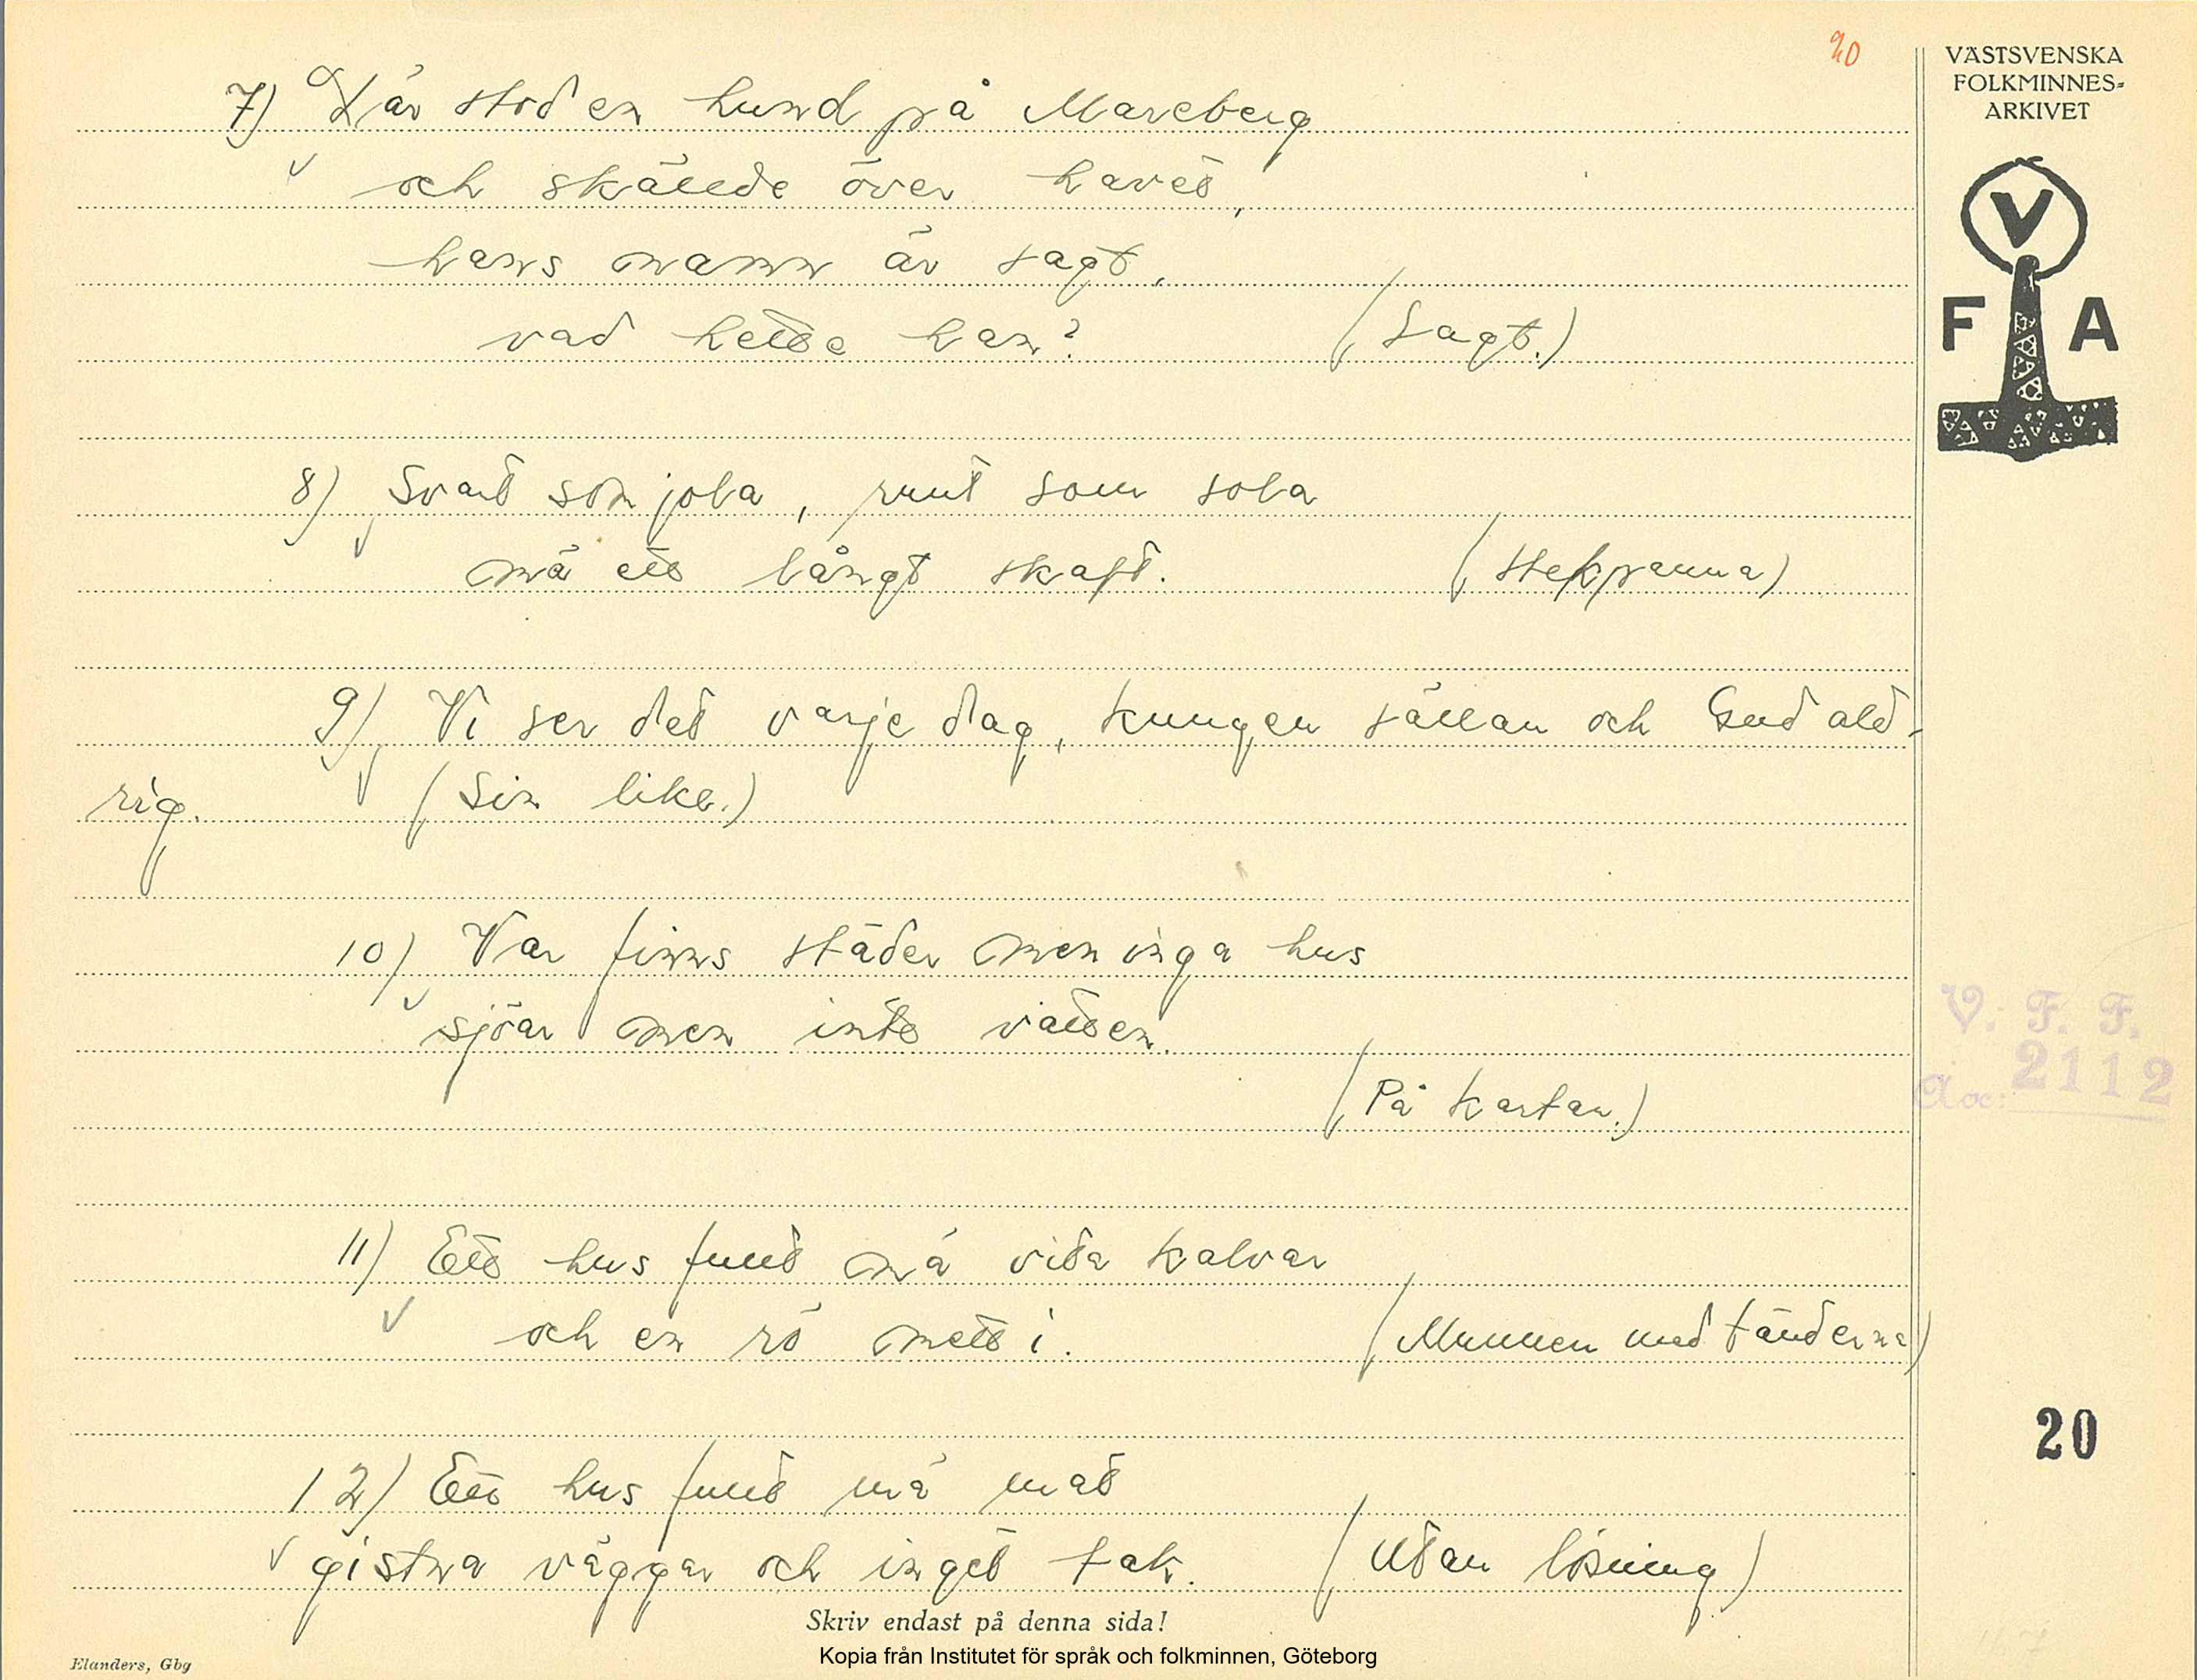 20
VÄSTSVENSKA
FOLKMINNES-
ARKIVET
V
F A
7) Där stod en hund på Mareberg
och skällde över havet,
hans namn är sagt,
vad hette han? (Sagt.)
8) Svart som jola, runt som sola
mä ett långt skaft. (Stekpanna)
9) Vi ser det varje dag, kungen sällan och Gud ald-
rig. (Sin like.)
10) Var finns städer men inga hus
sjöar men inte vatten.
(På kartan.)
V. F. F.
Acc: 2112
11) Ett hus fullt mä vita kalvar
och en rö mett i. (Munnen med tänderna)
20
12) Ett hus fullt mä mat
gistna väggar och inget tak. (Utan lösning)
Skriv endast på denna sida!
Kopia från Institutet för språk och folkminnen, Göteborg
Elanders, Gbg